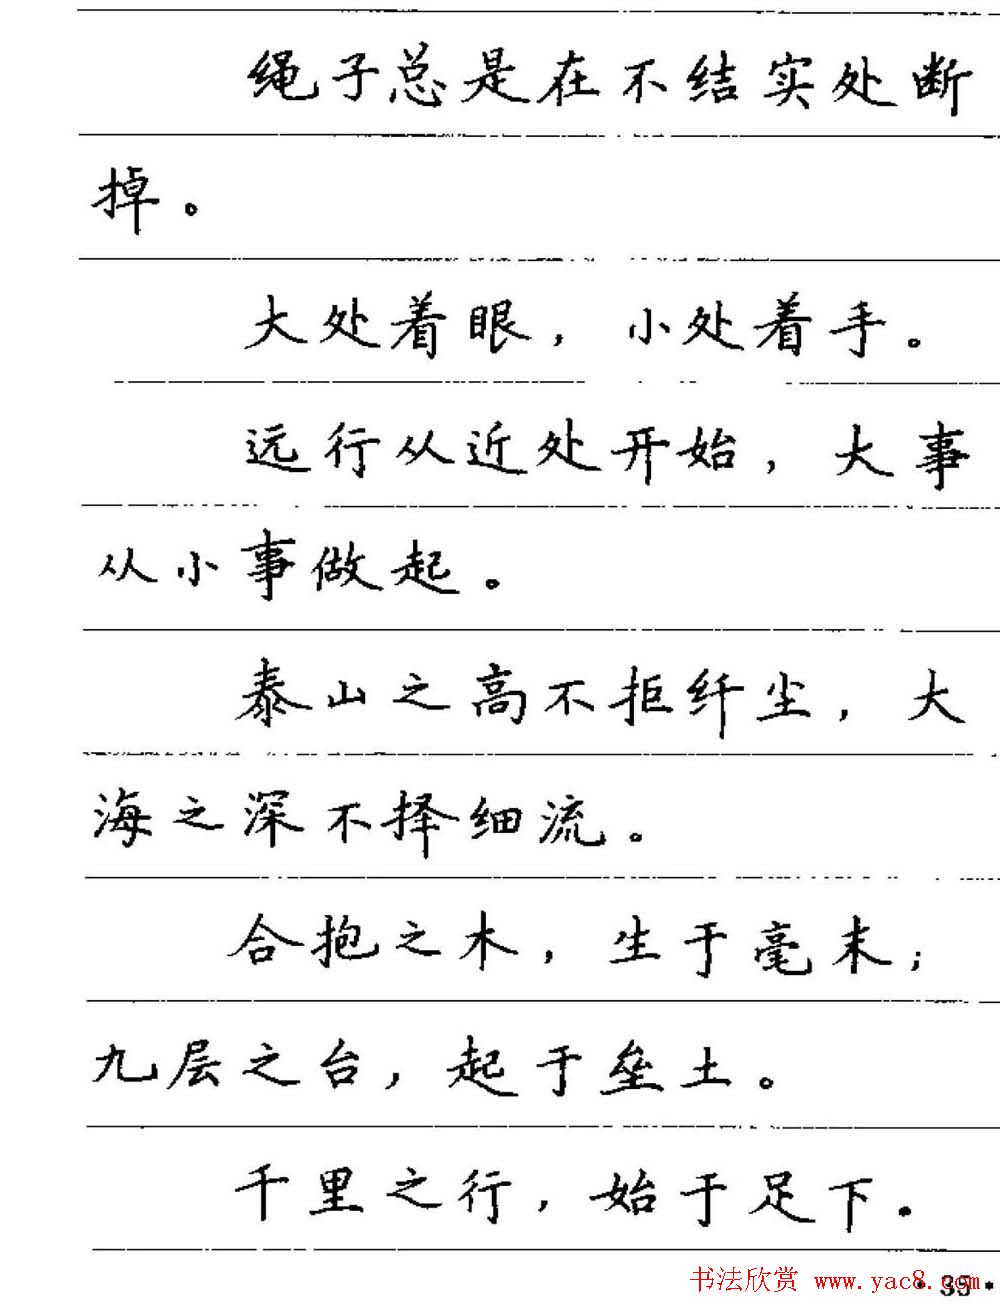 绳子总是在不结实处断
掉。
大处着眼，小处着手。
远行从近处开始，大事
从小事做起。
泰山之高不拒纤尘，大
海之深不择细流。
合抱之木，生于毫末；
九层之台，起于垒土。
千里之行，始于足下.
书法欣赏 www.yac8.com
·35·